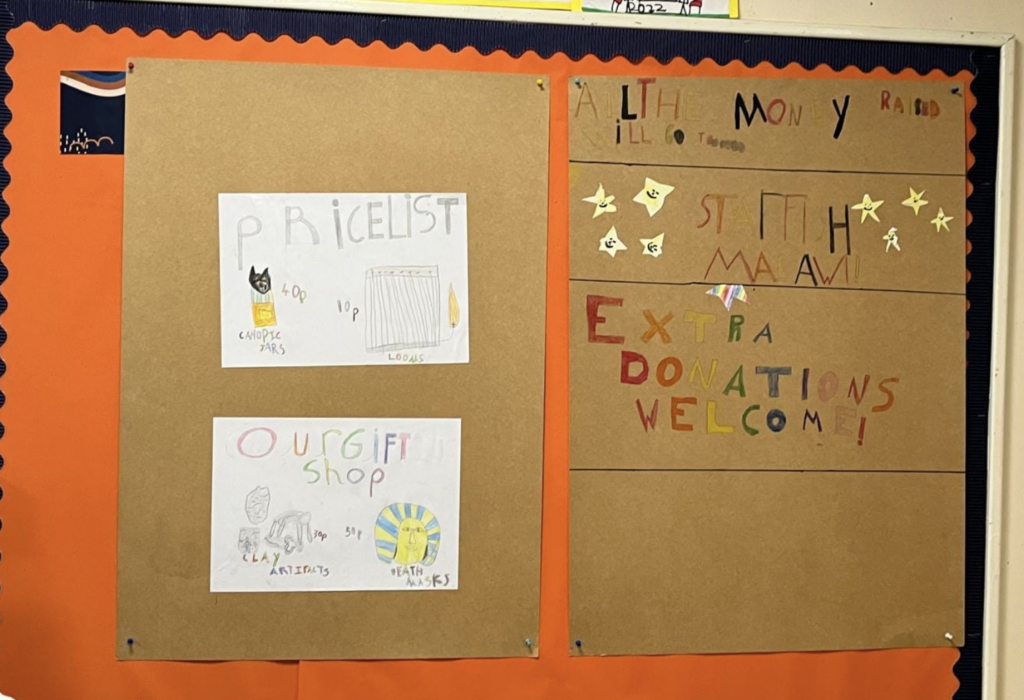 2022
PRiCELIST
40p
10p
CANOPIC
JARS
LOOMS
OURGiFT
Shop
30p
50p
CLAY
ARTIFACTS
DEATH
MASKS
ALLTHE MONEY RAISED
WiLL GO TOWARDS
MALAWI
EXTRA
DONATIONS
WELCOME!